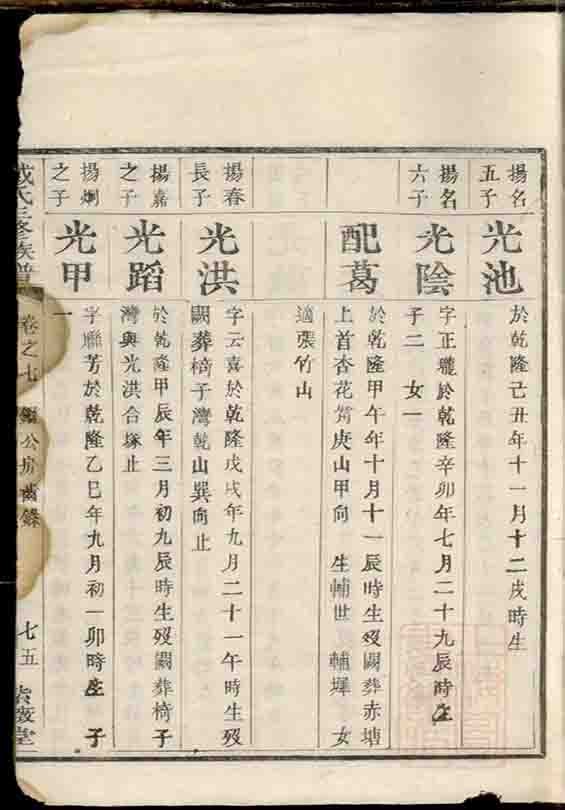 揚名
五子
光池
於乾隆己丑年十一月十二戌時生
揚名
六子
光陰
字正瓏於乾隆辛卯年七月二十九辰時生
子二 女一
配葛
於乾隆甲午年十月十一辰時生歿闕葬赤塘
上首杏花 庚山甲向 生輔世 輔墀 女
適張竹山
揚春
長子
光洪
字云喜於乾隆戊戌年九月二十一午時生歿
闕葬椅子灣乾山巽向止
揚嘉
之子
光蹈
於乾隆甲辰年三月初九辰時生歿闕葬椅子
灣與光洪合塚止
揚炯
之子
光甲
字聯芳於乾隆乙巳年九月初一卯時生 子
一
氏三修族譜
卷之七 公房齒錄
七五